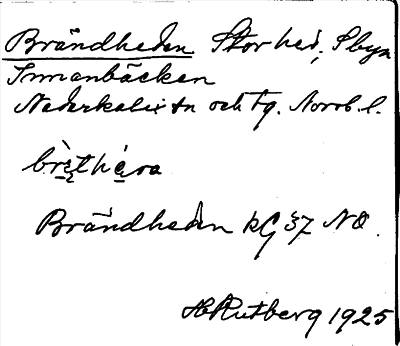 Brändheden Stor hed, S byn
Innanbäcken
Nederkalix sn och tg. Norrb. l.
brèthera
Brändheden kG 37 NO.
H Rutberg 1925